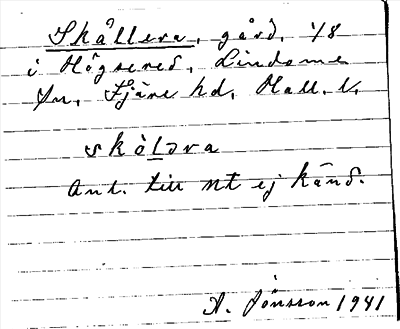 Skållera, gård, 1/8
i Högsered, Lindome
sn, Fjäre hd, Hall. l.
skò̀lǝra
Ant. till nt ej känd.
A. Jönsson 1941